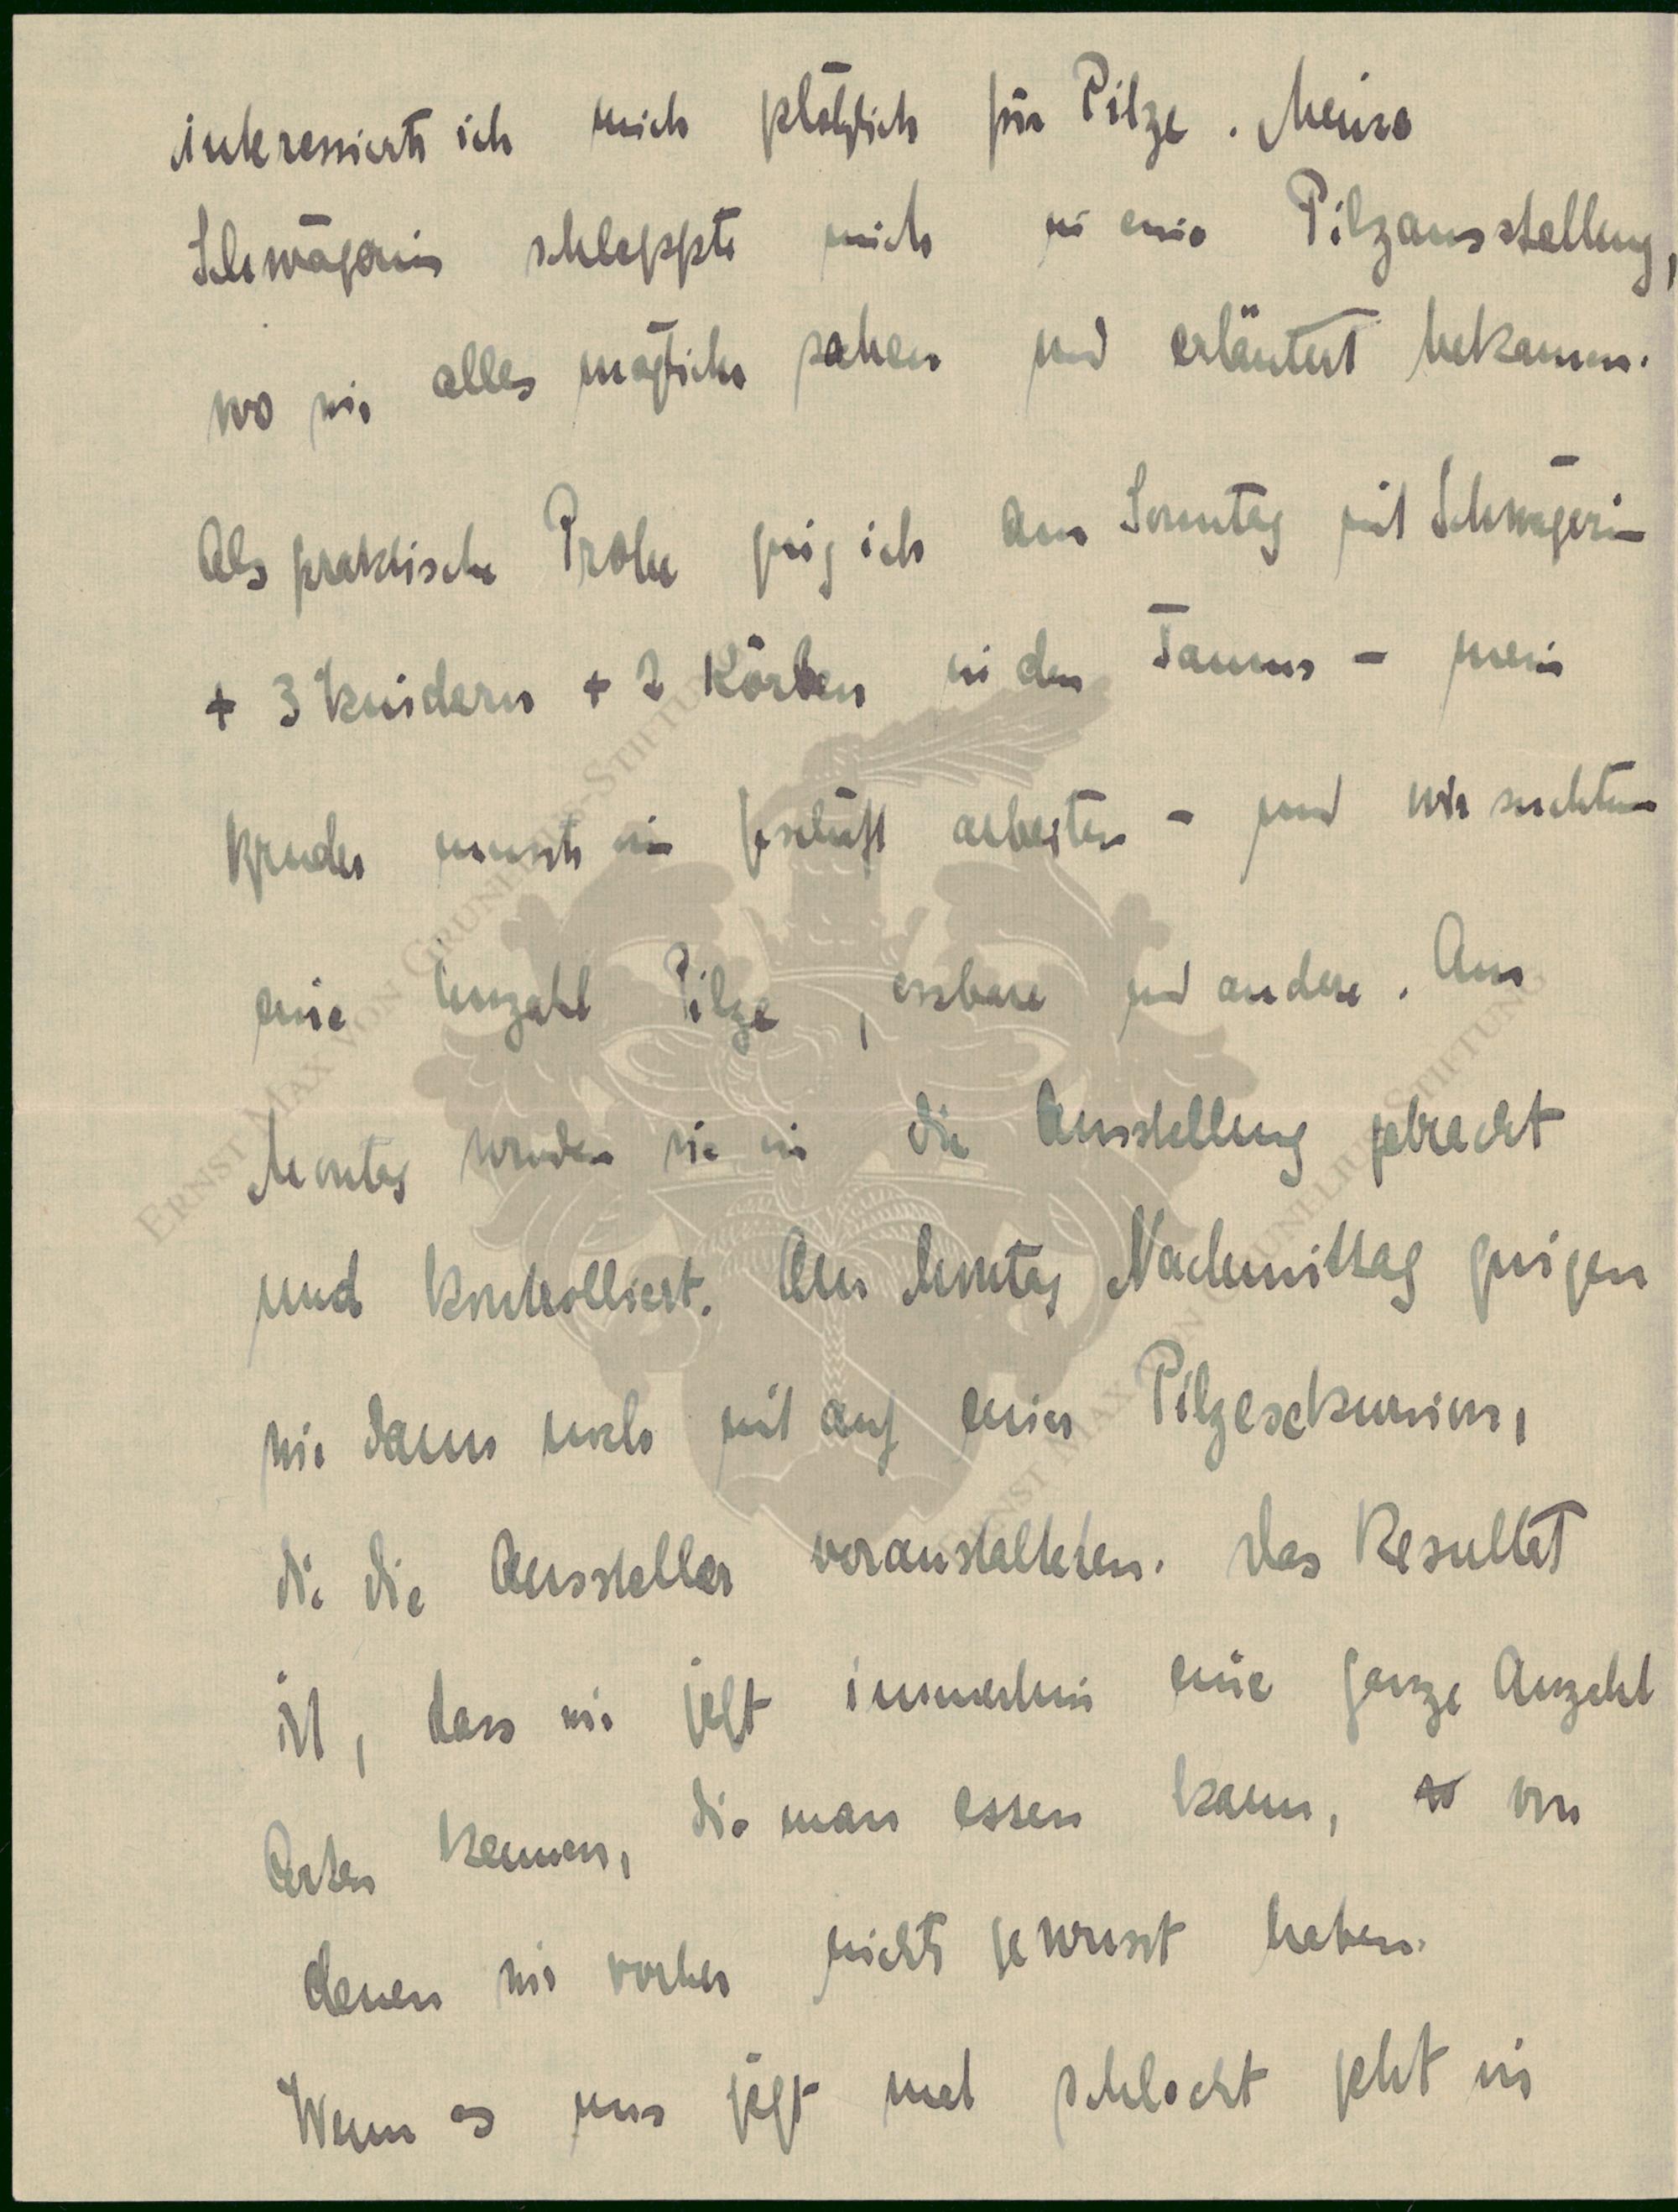 interessierte ich mich plötzlich für Pilze. Meine
Schwägerin schleppte mich in eine Pilzausstellung,
wo wir alles mögliche sahen und erläutert bekamen.
Als praktische Probe ging ich am Sonntag mit Schwägerin
+ 3 Kindern + 2 Körben in den Taunus - mein
Bruder musste im Geschäft arbeiten - und wir suchten
eine Unzahl Pilze, essbare und andere. Am
Montag wurden sie in die Ausstellung gebracht
und kontrolliert. Am Montag Nachmittag gingen
wir dann noch mit auf einer Pilzexkursion,
die die Aussteller veranstalteten. Das Resultat
ist, dass wir jetzt immerhin eine ganze Anzahl
Arten kennen, die man essen kann, von
denen wir vorher nichts gewusst haben.
Wenn es uns jetzt mal schlecht geht in
ERNST MAX VON GRUNELIUS-STIFTUNG
ERNST MAX VON GRUNELIUS-STIFTUNG